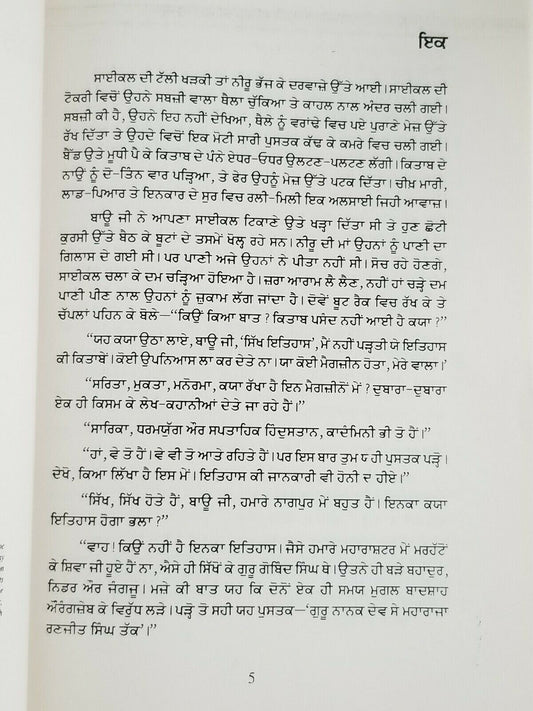 ਇਕ
ਸਾਈਕਲ ਦੀ ਟੱਲੀ ਖੜਕੀ ਤਾਂ ਨੀਰੂ ਭੱਜ ਕੇ ਦਰਵਾਜ਼ੇ ਉੱਤੇ ਆਈ। ਸਾਈਕਲ ਦੀ
ਟੋਕਰੀ ਵਿਚੋਂ ਉਹਨੇ ਸਬਜ਼ੀ ਵਾਲਾ ਥੈਲਾ ਚੁੱਕਿਆ ਤੇ ਕਾਹਲ ਨਾਲ ਅੰਦਰ ਚਲੀ ਗਈ।
ਸਬਜ਼ੀ ਕੀ ਹੈ, ਉਹਨੇ ਇਹ ਨਹੀਂ ਦੇਖਿਆ, ਥੈਲੇ ਨੂੰ ਵਰਾਂਢੇ ਵਿਚ ਪਏ ਪੁਰਾਣੇ ਮੇਜ਼ ਉੱਤੇ
ਰੱਖ ਦਿੱਤਾ ਤੇ ਉਹਦੇ ਵਿਚੋਂ ਇਕ ਮੋਟੀ ਸਾਰੀ ਪੁਸਤਕ ਕੱਢ ਕੇ ਕਮਰੇ ਵਿਚ ਚਲੀ ਗਈ।
ਬੈੱਡ ਉਤੇ ਮੂਧੀ ਪੈ ਕੇ ਕਿਤਾਬ ਦੇ ਪੰਨੇ ਏਧਰ-ਓਧਰ ਉਲਟਣ-ਪਲਟਣ ਲੱਗੀ। ਕਿਤਾਬ ਦੇ
ਨਾਉਂ ਨੂੰ ਦੋ-ਤਿੰਨ ਵਾਰ ਪੜ੍ਹਿਆ, ਤੇ ਫੇਰ ਉਹਨੂੰ ਮੇਜ਼ ਉੱਤੇ ਪਟਕ ਦਿੱਤਾ। ਚੀਖ਼ ਮਾਰੀ,
ਲਾਡ-ਪਿਆਰ ਤੇ ਇਨਕਾਰ ਦੇ ਸੁਰ ਵਿਚ ਰਲੀ-ਮਿਲੀ ਇਕ ਅਲਸਾਈ ਜਿਹੀ ਆਵਾਜ਼।
ਬਾਊ ਜੀ ਨੇ ਆਪਣਾ ਸਾਈਕਲ ਟਿਕਾਣੇ ਉਤੇ ਖੜ੍ਹਾ ਦਿੱਤਾ ਸੀ ਤੇ ਹੁਣ ਛੋਟੀ
ਕੁਰਸੀ ਉੱਤੇ ਬੈਠ ਕੇ ਬੂਟਾਂ ਦੇ ਤਸਮੇਂ ਖੋਲ੍ਹ ਰਹੇ ਸਨ। ਨੀਰੂ ਦੀ ਮਾਂ ਉਹਨਾਂ ਨੂੰ ਪਾਣੀ ਦਾ
ਗਿਲਾਸ ਦੇ ਗਈ ਸੀ। ਪਰ ਪਾਣੀ ਅਜੇ ਉਹਨਾਂ ਨੇ ਪੀਤਾ ਨਹੀਂ ਸੀ। ਸੋਚ ਰਹੇ ਹੋਣਗੇ,
ਸਾਈਕਲ ਚਲਾ ਕੇ ਦਮ ਚੜ੍ਹਿਆ ਹੋਇਆ ਹੈ। ਜ਼ਰਾ ਆਰਾਮ ਲੈ ਲੈਣ, ਨਹੀਂ ਹਾਂ ਚੜ੍ਹੇ ਦਮ
ਪਾਣੀ ਪੀਣ ਨਾਲ ਉਹਨਾਂ ਨੂੰ ਜ਼ੁਕਾਮ ਲੱਗ ਜਾਂਦਾ ਹੈ। ਦੋਵੇਂ ਬੂਟ ਰੈਕ ਵਿਚ ਰੱਖ ਕੇ ਤੇ
ਚੱਪਲਾਂ ਪਹਿਨ ਕੇ ਬੋਲੇ—“ਕਿਉਂ ਕਿਆ ਬਾਤ? ਕਿਤਾਬ ਪਸੰਦ ਨਹੀਂ ਆਈ ਹੈ ਕਯਾ?”
“ਯਹ ਕਯਾ ਉਠਾ ਲਾਏ, ਬਾਊ ਜੀ, ‘ਸਿੱਖ ਇਤਿਹਾਸ’, ਮੈਂ ਨਹੀਂ ਪੜ੍ਹਤੀ ਯੇ ਇਤਿਹਾਸ
ਕੀ ਕਿਤਾਬੇਂ। ਕੋਈ ਉਪਨਿਆਸ ਲਾ ਕਰ ਦੇਤੇ ਨਾ। ਯਾ ਕੋਈ ਮੈਗਜ਼ੀਨ ਹੋਤਾ, ਮੇਰੇ ਵਾਲਾ।’
“ਸਰਿਤਾ, ਮੁਕਤਾ, ਮਨੋਰਮਾ, ਕਯਾ ਰੱਖਾ ਹੈ ਇਨ ਮੈਗਜ਼ੀਨੋਂ ਮੇਂ? ਦੁਬਾਰਾ-ਦੁਬਾਰਾ
ਏਕ ਹੀ ਕਿਸਮ ਕੇ ਲੇਖ-ਕਹਾਨੀਆਂ ਦੇਤੇ ਜਾ ਰਹੇ ਹੈਂ।”
“ਸਾਰਿਕਾ, ਧਰਮਯੁੱਗ ਔਰ ਸਪਤਾਹਿਕ ਹਿੰਦੁਸਤਾਨ, ਕਾਦੰਮਿਨੀ ਭੀ ਤੋ ਹੈਂ।”
“ਹਾਂ, ਵੇ ਤੋ ਹੈਂ। ਵੇ ਵੀ ਤੋ ਆਤੇ ਰਹਿਤੇ ਹੈਂ। ਪਰ ਇਸ ਬਾਰ ਤੁਮ ਯ ਹੀ ਪੁਸਤਕ ਪੜ੍ਹੋ।
ਦੇਖੋ, ਕਿਆ ਲਿੱਖਾ ਹੈ ਇਸ ਮੇਂ। ਇਤਿਹਾਸ ਕੀ ਜਾਨਕਾਰੀ ਵੀ ਹੋਨੀ ਦ ਹੀਏ।”
“ਸਿੱਖ, ਸਿੱਖ ਹੋਤੇ ਹੈਂ, ਬਾਊ ਜੀ, ਹਮਾਰੇ ਨਾਗਪੁਰ ਮੇਂ ਬਹੁਤ ਹੈਂ। ਇਨਕਾ ਕਯਾ
ਇਤਿਹਾਸ ਹੋਗਾ ਭਲਾ?”
“ਵਾਹ! ਕਿਉਂ ਨਹੀਂ ਹੈ ਇਨਕਾ ਇਤਿਹਾਸ। ਜੈਸੇ ਹਮਾਰੇ ਮਹਾਰਾਸ਼ਟਰ ਮੇਂ ਮਰਹੱਟੋਂ
ਕੇ ਸ਼ਿਵਾ ਜੀ ਹੂਏ ਹੈਂ ਨਾ, ਐਸੇ ਹੀ ਸਿੱਖੋਂ ਕੇ ਗੁਰੂ ਗੋਬਿੰਦ ਸਿੰਘ ਥੇ। ਉਤਨੇ ਹੀ ਬੜੇ ਬਹਾਦੁਰ,
ਨਿਡਰ ਔਰ ਜੰਗਜੂ। ਮਜ਼ੇ ਕੀ ਬਾਤ ਯਹ ਕਿ ਦੋਨੋਂ ਏਕ ਹੀ ਸਮਯ ਮੁਗਲ ਬਾਦਸ਼ਾਹ
ਔਰੰਗਜ਼ੇਬ ਕੇ ਵਿਰੁੱਧ ਲੜੇ। ਪੜ੍ਹੋ ਤੋ ਸਹੀ ਯਹ ਪੁਸਤਕ—‘ਗੁਰੂ ਨਾਨਕ ਦੇਵ ਸੇ ਮਹਾਰਾਜਾ
ਰਣਜੀਤ ਸਿੰਘ ਤੱਕ’।”
5